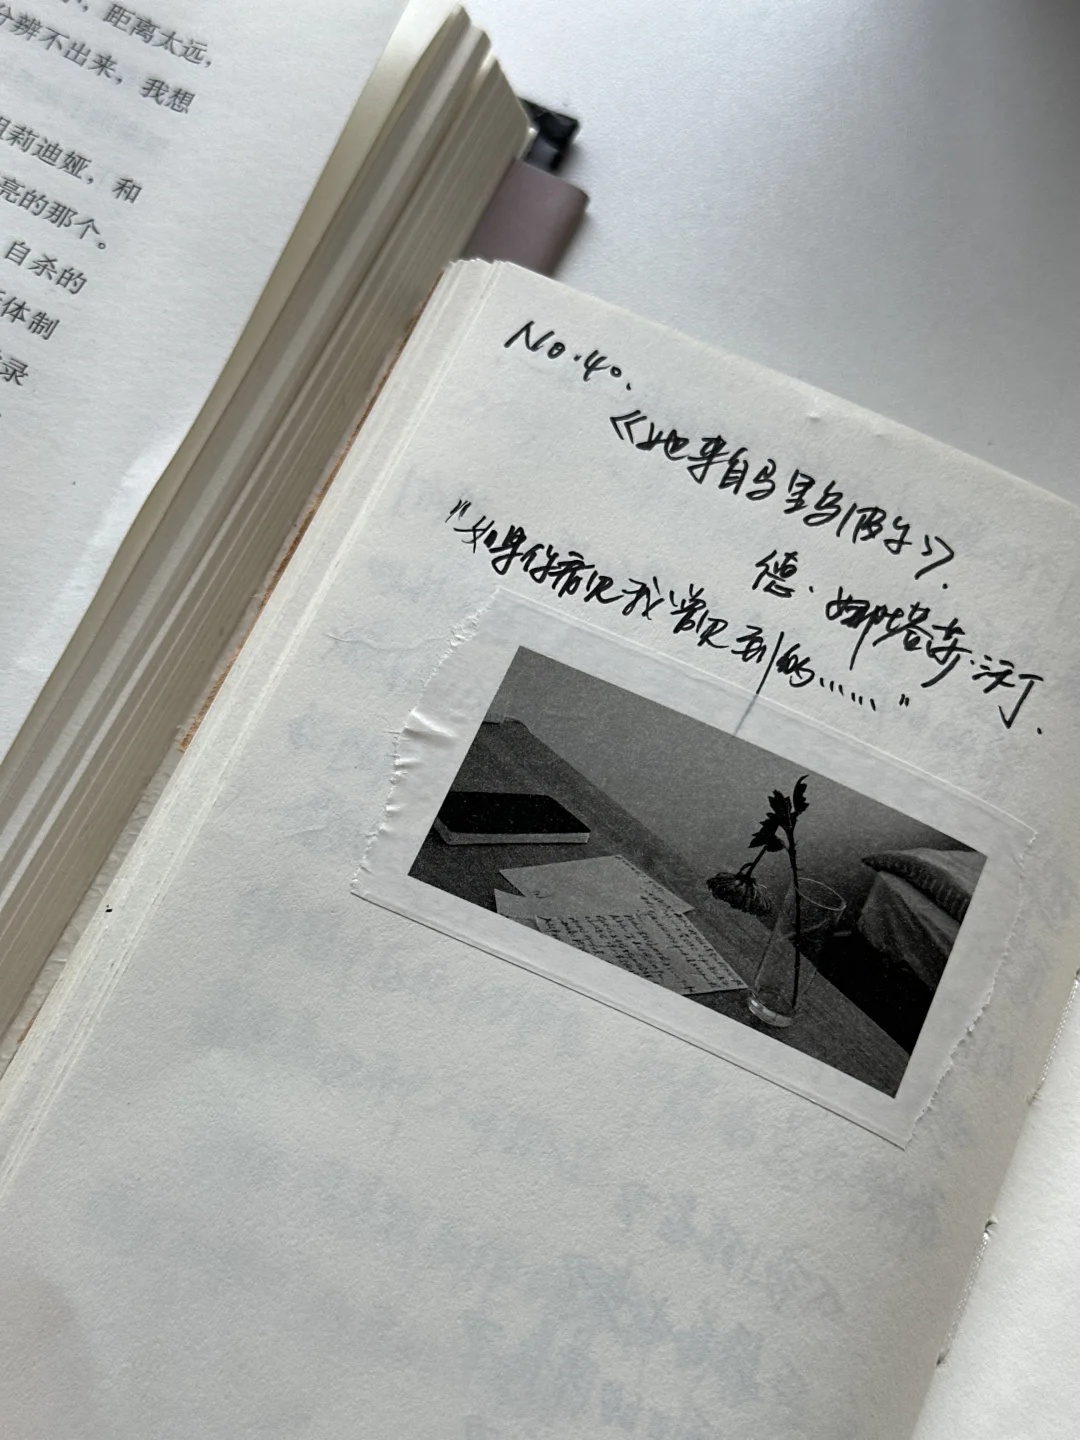 ，距离太远，
分辨不出来，我想
莉迪娅，和
亮的那个。
自杀的
体制
录
No.40.
《她来自马里乌波尔》.
德.娜塔莎·沃丁.
"如果你看见我曾见到的……"